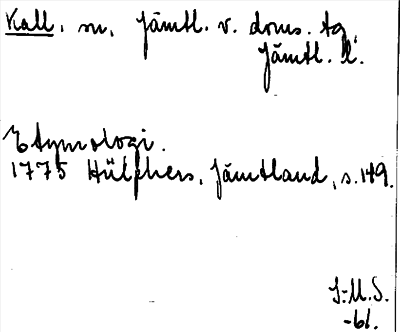 Kall. sn, Jämtl. v. doms. tg,
Jämtl. l.
Etymologi.
1775 Hülphers, Jämtland, s. 149.
J:M.S.
-61.